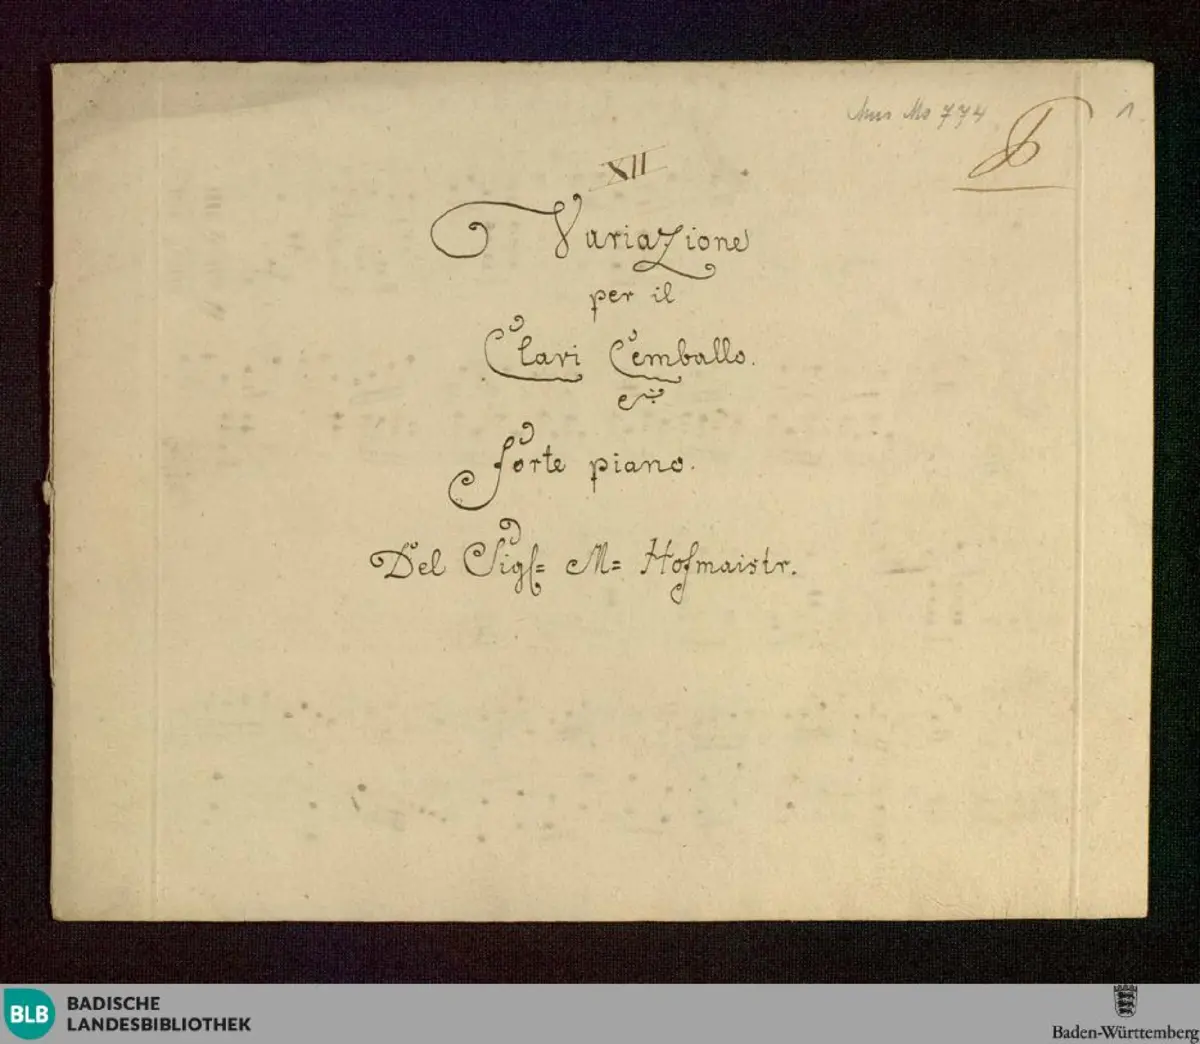 Mus Ms 774
1
XII
Variazione
per il
Clavi Cemballo.
Forte piano.
Del Sigl= M= Hofmaistr.
BLB BADISCHE
LANDESBIBLIOTHEK
Baden-Württemberg